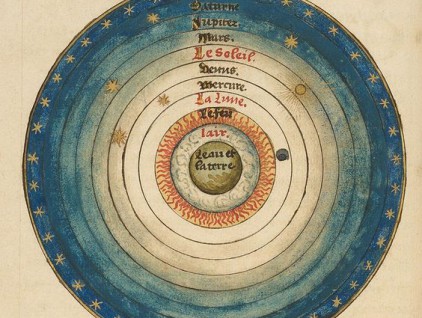 Saturne
Jupiter.
Mars.
Le Soleil.
Venus.
Mercure.
La Lune.
Le feu
lair.
Leau et
la terre